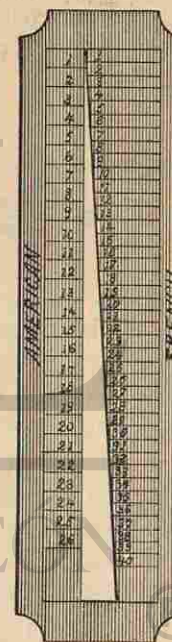 AMERICAN
1
2
3
4
5
6
7
8
9
10
11
12
13
14
15
16
17
18
19
20
21
22
23
24
25
26
1
2
3
4
5
6
7
8
9
10
11
12
13
14
15
16
17
18
19
20
21
22
23
24
25
26
27
28
29
30
31
32
33
34
35
36
37
38
39
40
FRENCH